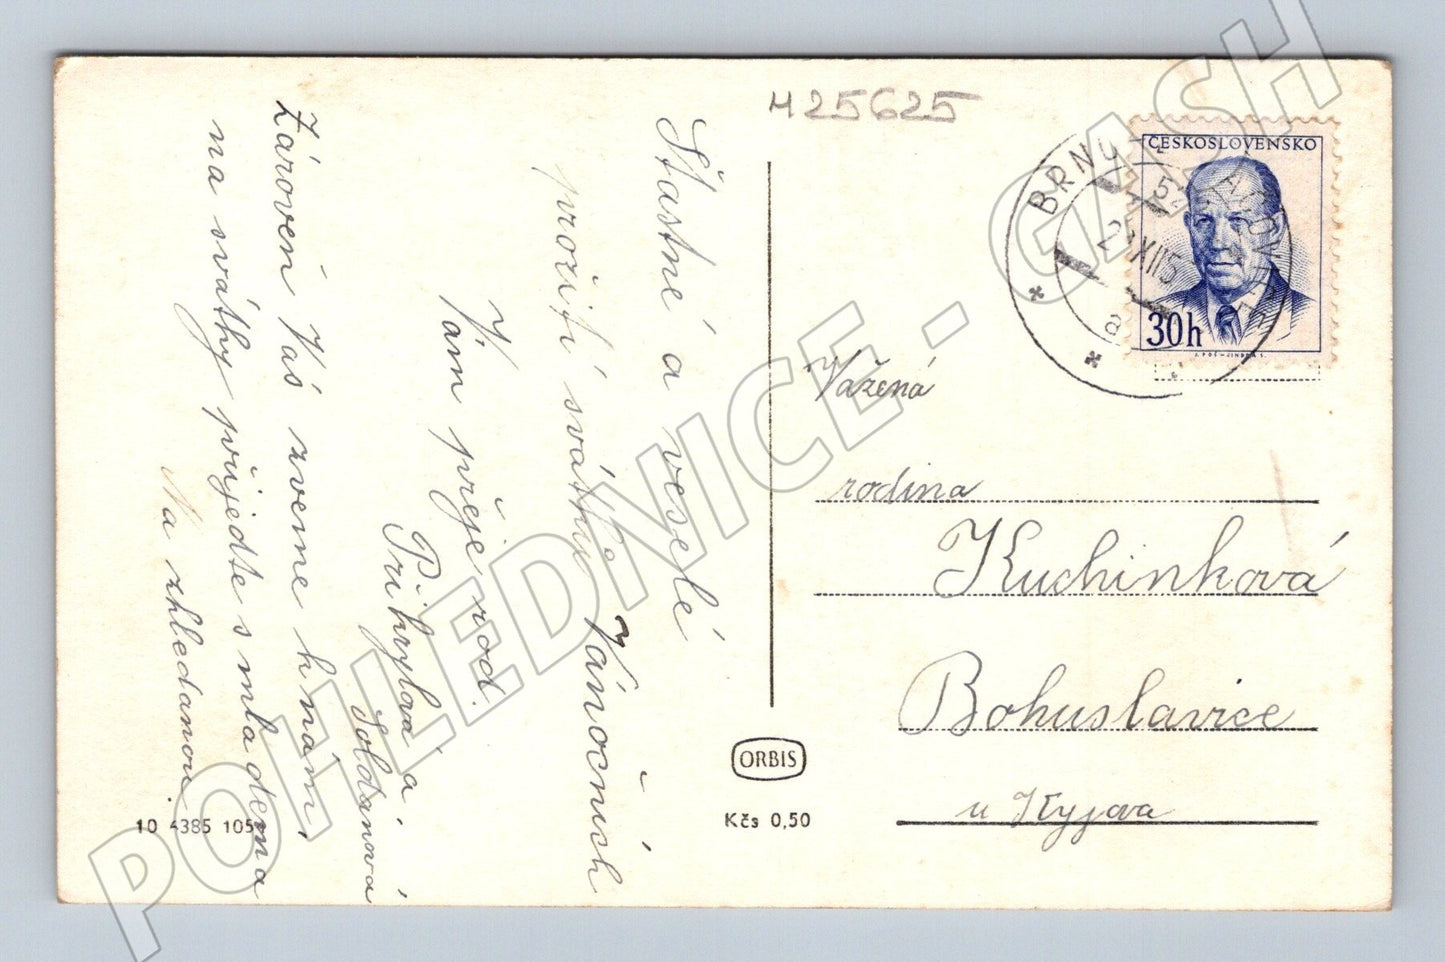 425625
Šťastné a veselé
prožití svátků
Vánočních
Vám přeje rod.
Přikrylová a
Soldánová
Zároveň Vás zveme k nám,
na svátky přijeďte s mladema
Na shledanou.
10 4385 105
ORBIS
Kčs 0,50
BRNO
52
XII 5
a
ČESKOSLOVENSKO
30h
Vážená
rodina
Kuchinková
Bohuslavice
u Kyjova
POHLEDNICE - GASH